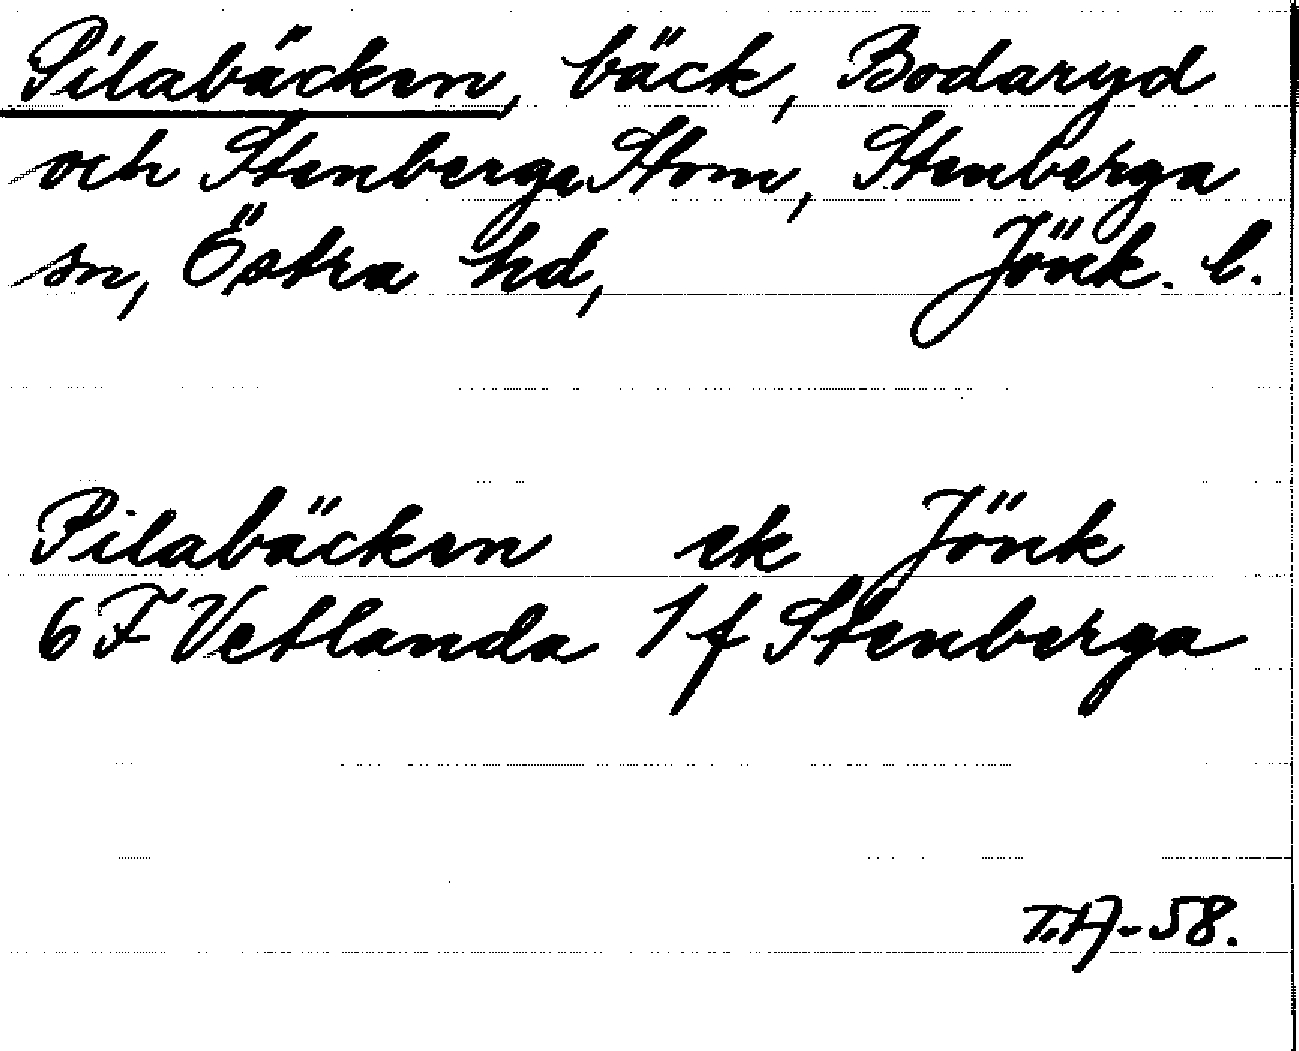 Pilabäcken, bäck, Bodaryd
och Stenberga Stom, Stenberga
sn, Östra hd, Jönk. l.
Pilabäcken ek Jönk
6 F Vetlanda 1 f Stenberga
T.A-58.